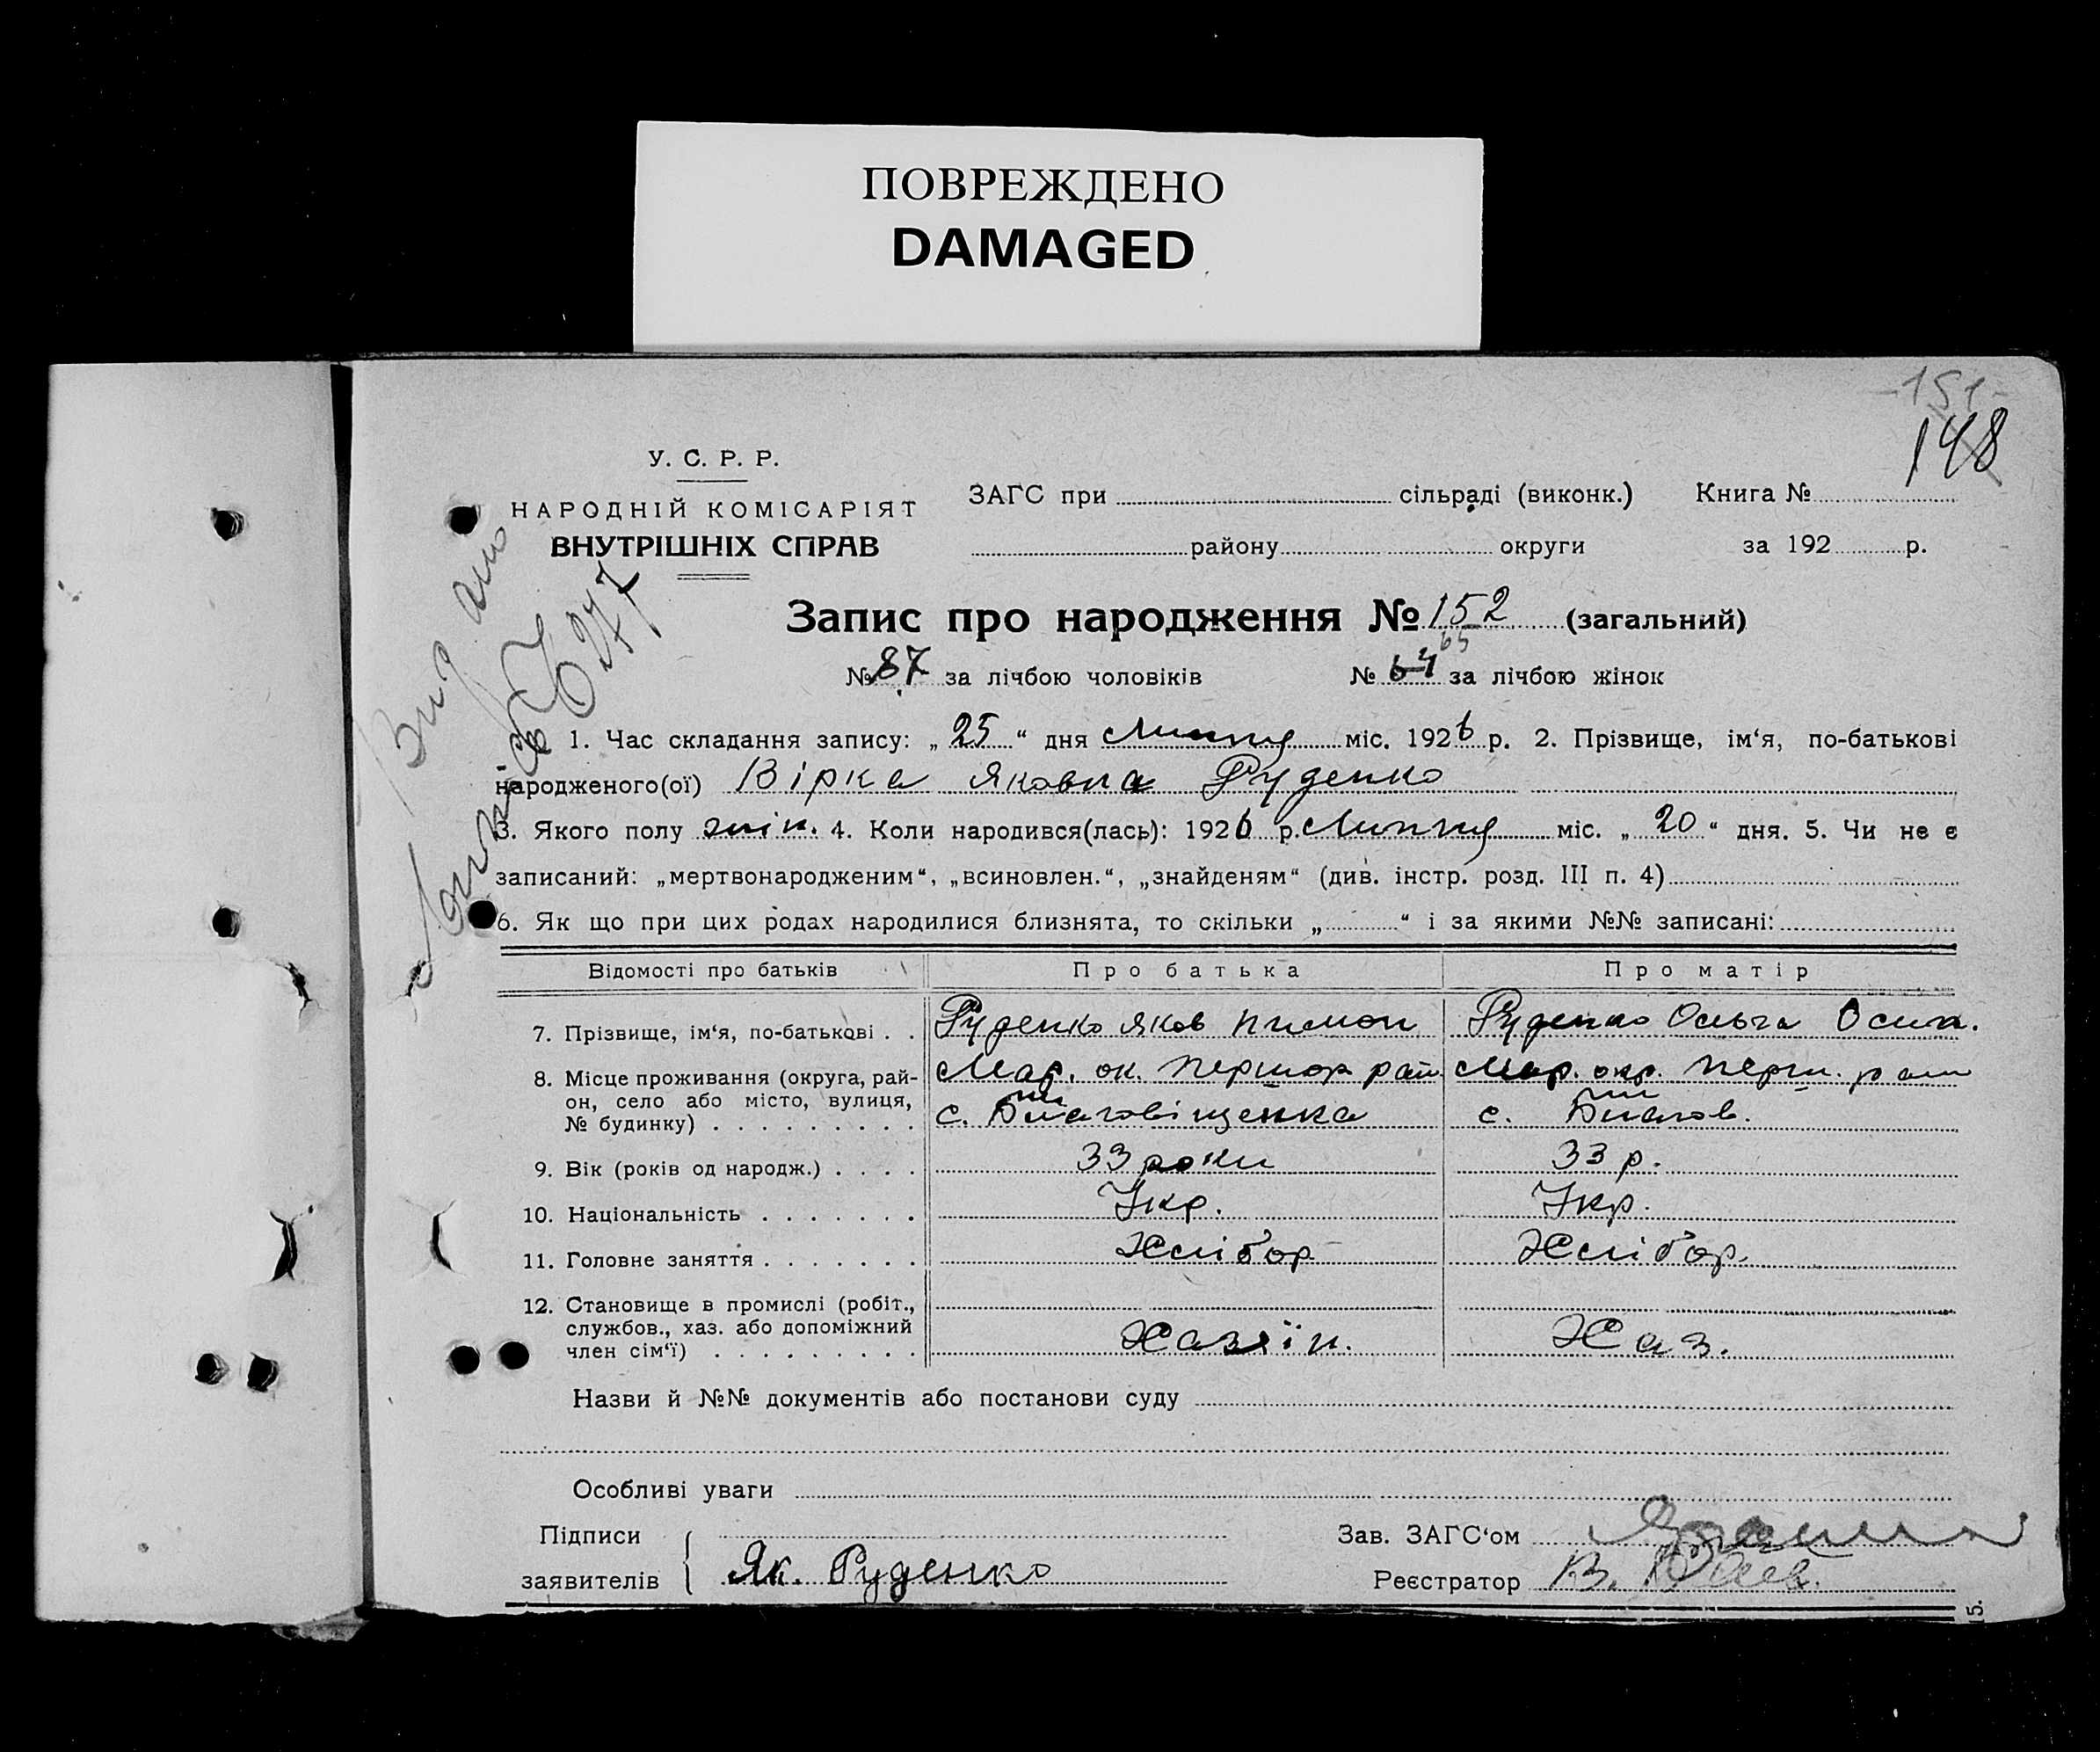 ПОВРЕЖДЕНО
DAMAGED
-151-
148
У. С. Р. Р.
НАРОДНІЙ КОМІСАРІЯТ
ВНУТРІШНІХ СПРАВ
ЗАГС при сільраді (виконк.) Книга №
району округи за 192 р.
Запис про народження № 152 (загальний)
65
№ 87 за лічбою чоловіків № 64 за лічбою жінок
Видано
1. Час складання запису: „ 25 “ дня Липня міс. 1926 р. 2. Прізвище, ім‘я, по-батькові
народженого(ої) Вірка Яковна Руденко
3. Якого полу жін. 4. Коли народився(лась): 1926 р. Липня міс. „ 20 “ дня. 5. Чи не є
записаний: „мертвонародженим“, „всиновлен.“, „знайденям“ (див. інстр. розд. III п. 4)
6. Як що при цих родах народилися близнята, то скільки „ “ і за якими №№ записані:
Відомості про батьків Про батька Про матір
7. Прізвище, ім‘я, по-батькові . . Руденко Яков Пимон Руденко Ольга Осип.
8. Місце проживання (округа, рай- Мар. ок. Першор рай. Мар. окр. Перш. рай
он, село або місто, вулиця, с. Благовіщенка с. Благов.
№ будинку) . . . . . . . . .
9. Вік (років од народж.) . . . . 33 роки 33 р.
10. Національність . . . . . . . Укр. Укр.
11. Головне заняття . . . . . . . Хлібор Хлібор.
12. Становище в промислі (робіт.,
службов., хаз. або допоміжний Хазяїн. Хаз.
член сім‘ї) . . . . . . . . .
Назви й №№ документів або постанови суду
Особливі уваги
Підписи Зав. ЗАГС‘ом
заявителів Як. Руденко Реєстратор В.
15.